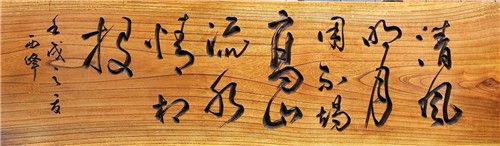 清風
明月
用不竭
高山
流水
情相
投
壬戌之夏
西峰